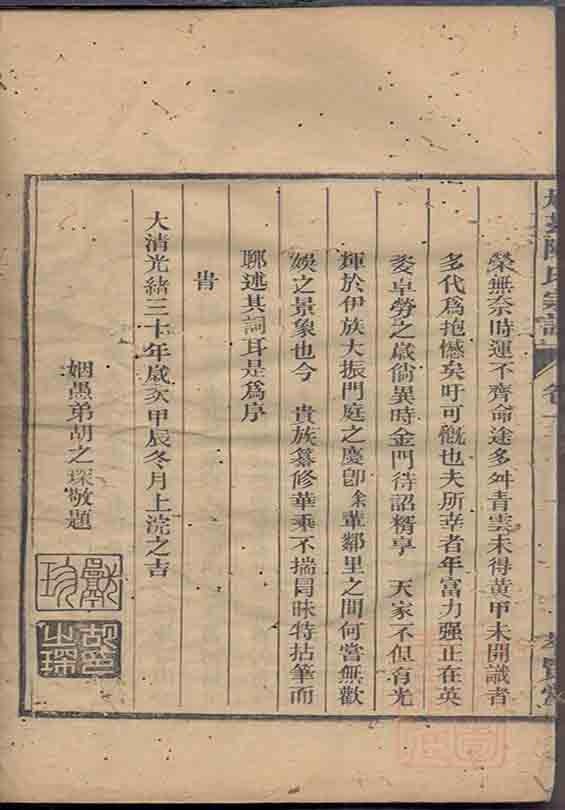 陳氏宗譜 卷
榮無奈時運不齊命途多舛青雲未得黃甲未開識者
多代爲抱憾矣吁可慨也夫所幸者年富力强正在英
姿卓勞之歲倘異時金門待詔糈享 天家不但有光
輝於伊族大振門庭之慶卽余輩鄰里之間何嘗無歡
娛之景象也今 貴族纂修華乘不揣冒昧特拈筆而
聊述其詞耳是爲序
旹
大清光緒三十年歲次甲辰冬月上浣之吉
姻愚弟胡之琛敬題